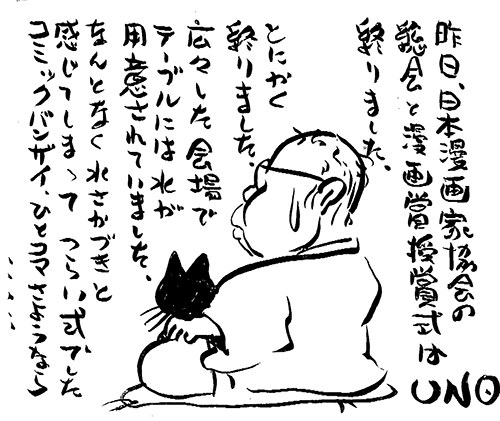 昨日、日本漫画家協会の
総会と漫画賞授賞式は
終りました、
とにかく
終りました、
広々した会場で
テーブルには水が
用意されていました、
なんとなく水さかづきと
感じてしまって つらい式でした
コミックバンザイ、ひとコマさようなら
UNO